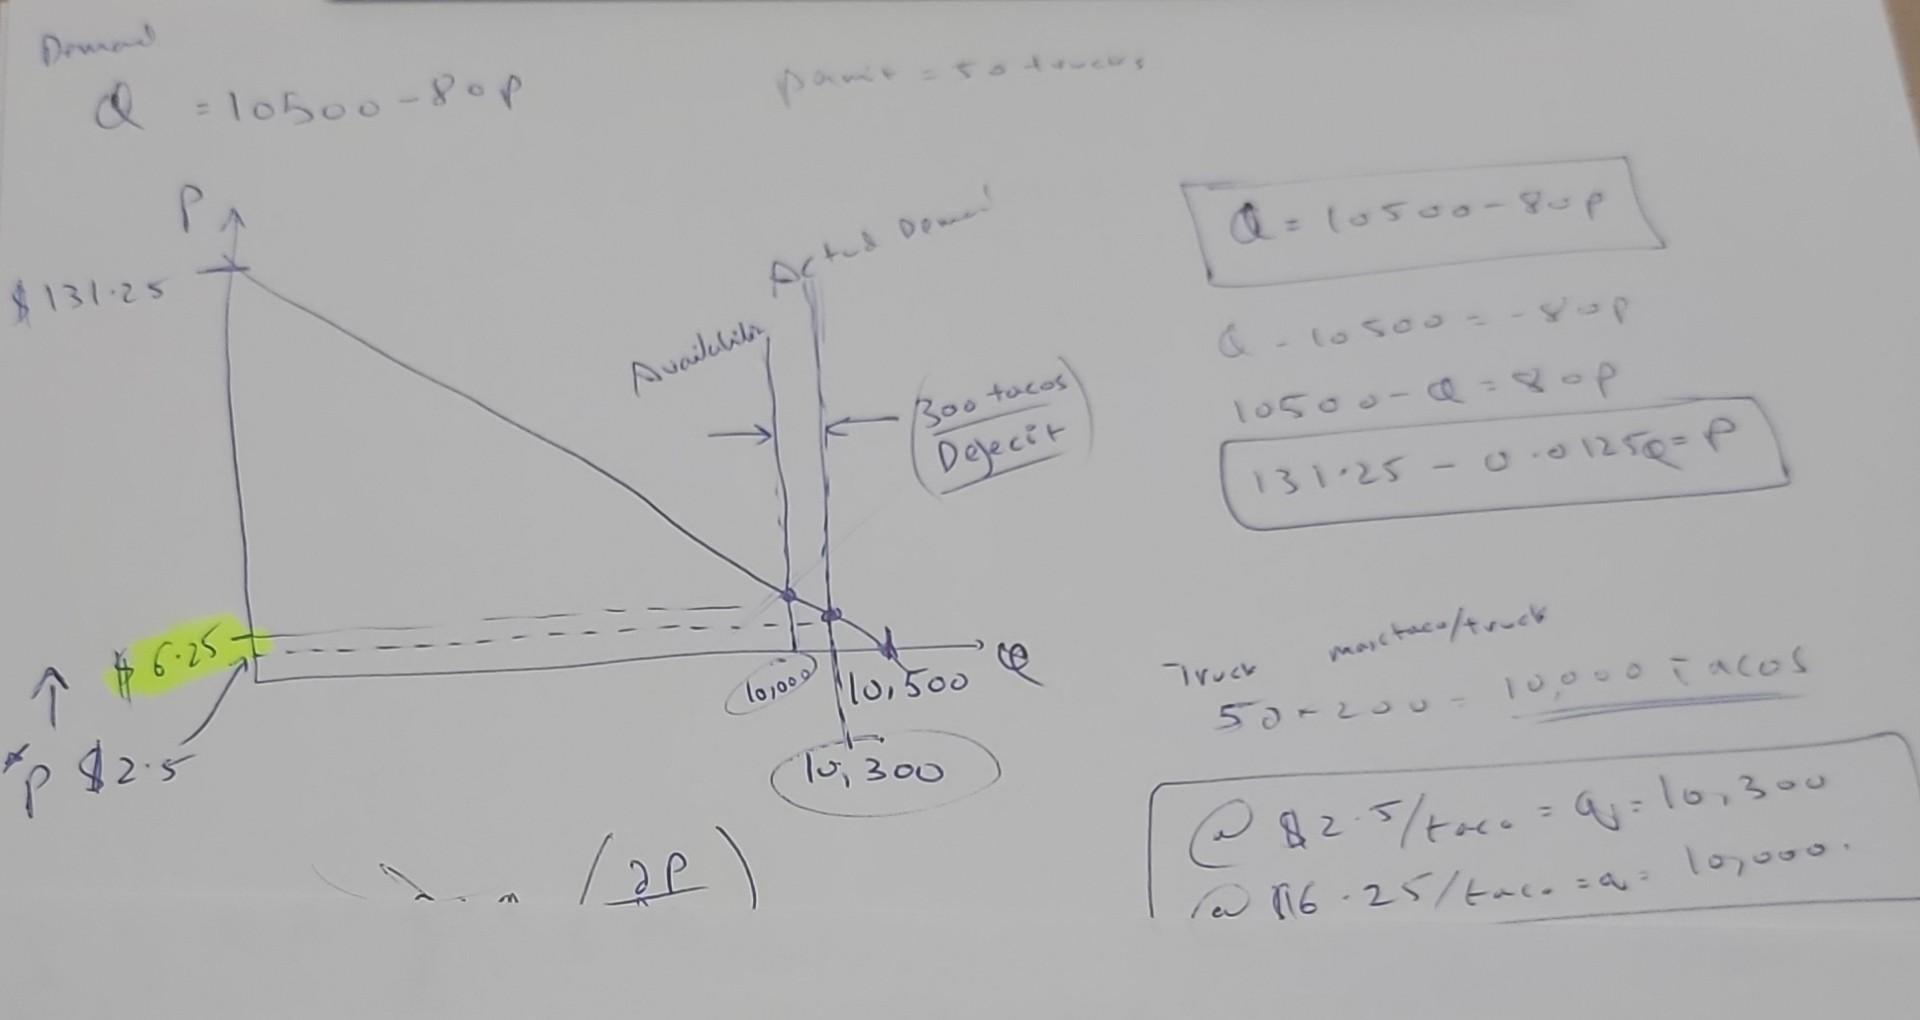 Demand
Q = 10500 - 80p
permit = 50 trucks
P
$131.25
Availability
Actual Demand
300 tacos
Dejecit
$6.25
*P $2.5
10,000
10,500
Q
10,300
(∂P)
Q = 10500 - 80p
Q - 10500 = -80p
10500 - Q = 80p
131.25 - 0.0125Q = P
Truck max taco/truck
50 × 200 = 10,000 Tacos
@ $2.5/taco = q = 10,300
@ $6.25/taco = q = 10,000.